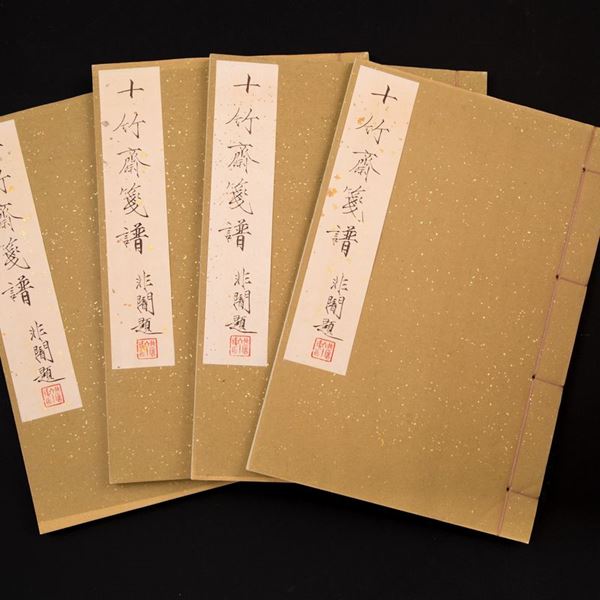 竹齋箋譜 非闇題
十竹齋箋譜 非闇題
十竹齋箋譜 非闇題
十竹齋箋譜 非闇題